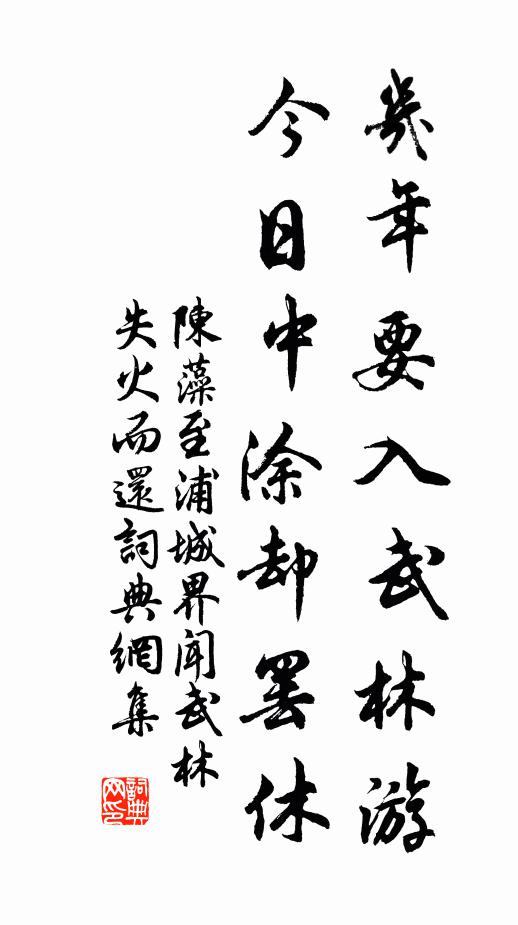 幾年要入武林游
今日中涂却罢休
陳藻至浦城界聞武林
失火而還詞典網集
詞典网印